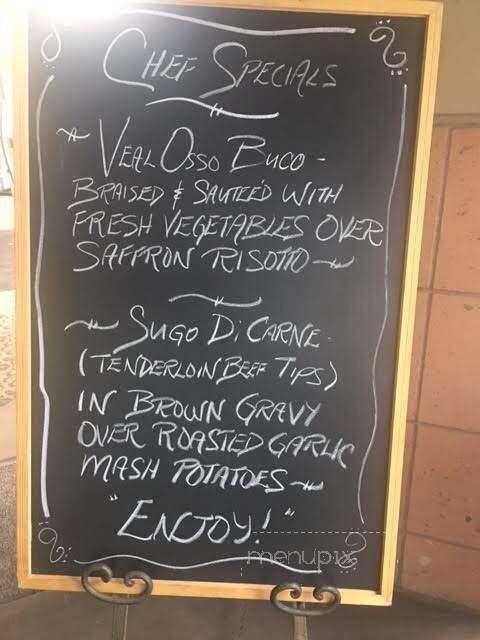 CHEF SPECIALS
VEAL OSSO BUCO -
BRAISED & SAUTEÉD WITH
FRESH VEGETABLES OVER
SAFFRON RISOTTO
SUGO DI CARNE
(TENDERLOIN BEEF TIPS)
IN BROWN GRAVY
OVER ROASTED GARLIC
MASH POTATOES
"ENJOY!"
menupix